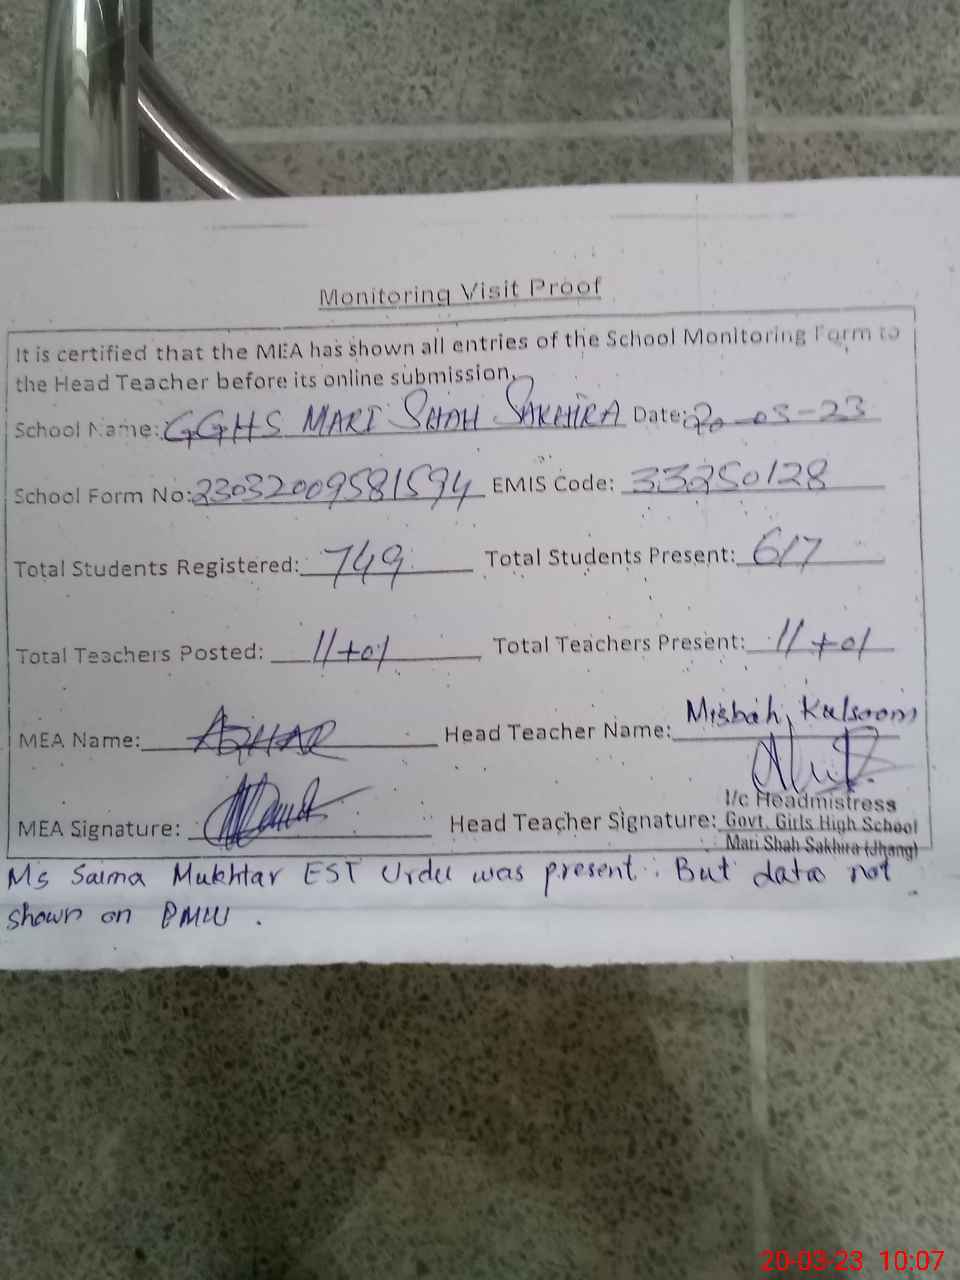 Monitoring Visit Proof
It is certified that the MEA has shown all entries of the School Monitoring Form to
the Head Teacher before its online submission.
School Name: GGHS MARI SHAH SAKHIRA Date: 20-03-23
School Form No: 23032009581594 EMIS Code: 33250128
Total Students Registered: 749 Total Students Present: 617
Total Teachers Posted: 11+01 Total Teachers Present: 11+01
MEA Name: AZHAR Head Teacher Name: Misbah Kalsoom
MEA Signature: Head Teacher Signature:
I/c Headmistress
Govt. Girls High School
Mari Shah Sakhira (Jhang)
Ms Saima Mukhtar EST Urdu was present. But data not
shown on PMIU.
20-03-23 10:07